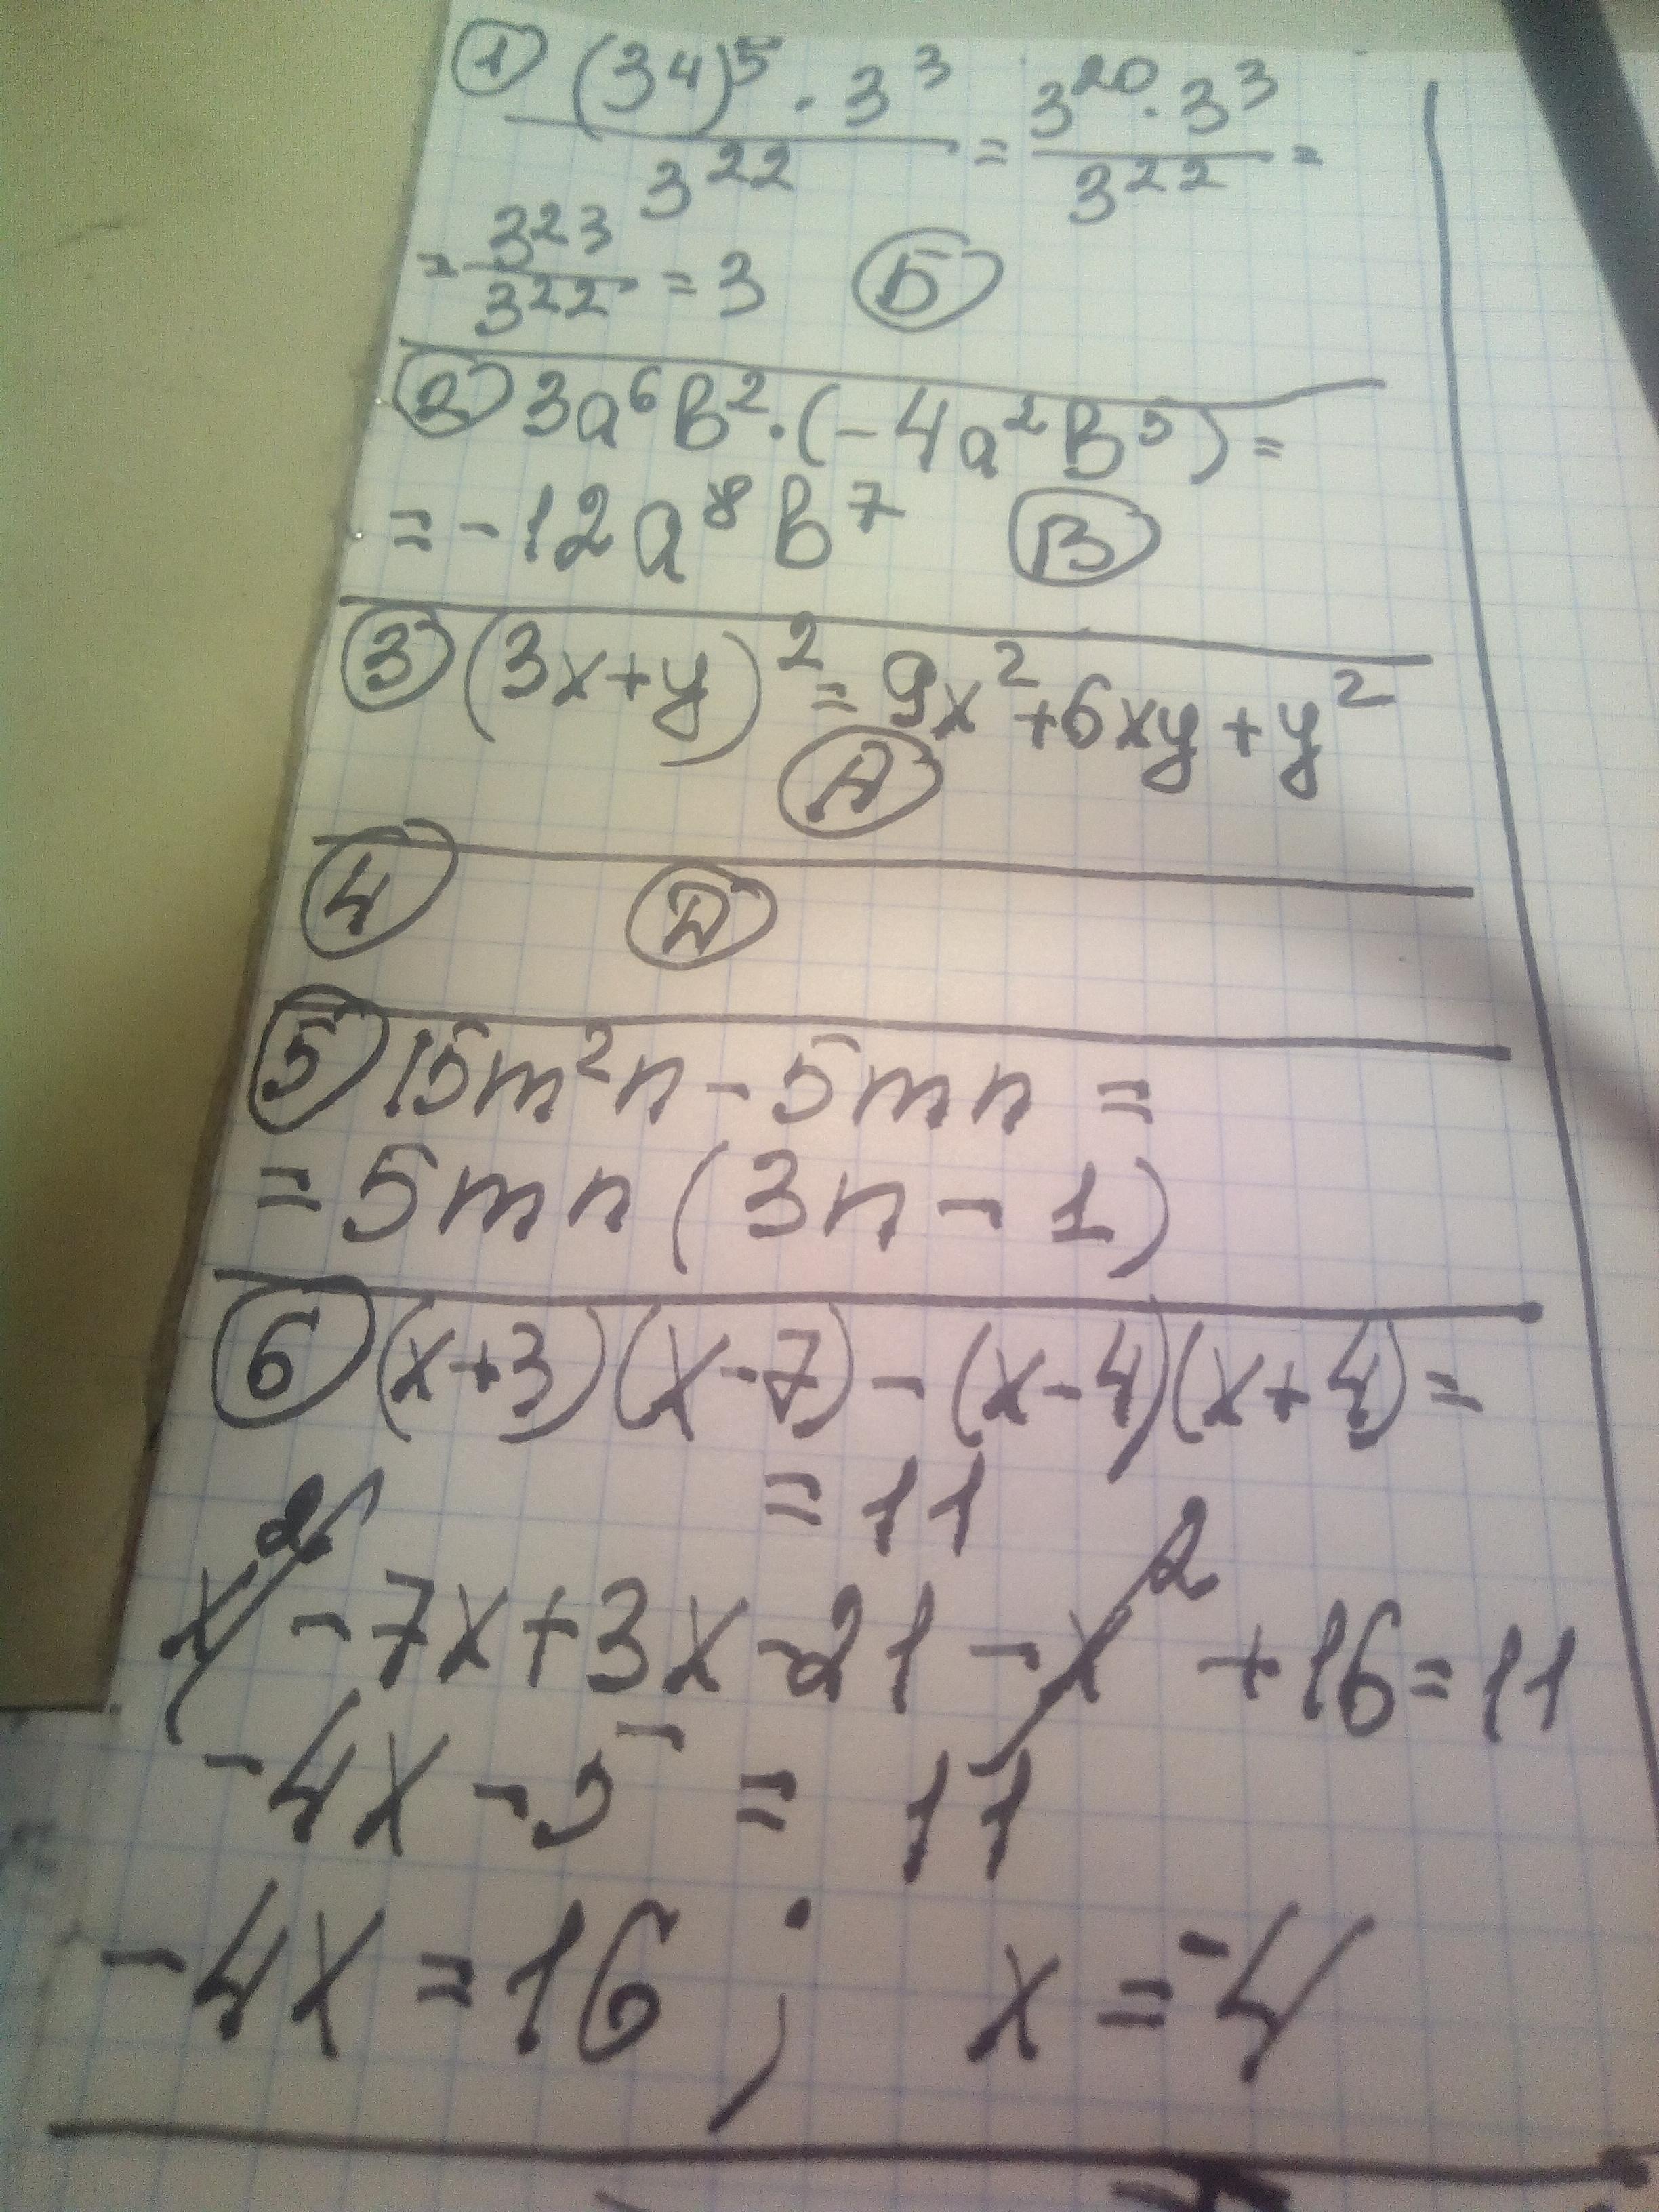 ① (3⁴)⁵ · 3³ / 3²² = 3²⁰ · 3³ / 3²² =
= 3²³ / 3²² = 3 Б
② 3a⁶b² · (-4a²b⁵) =
= -12a⁸b⁷ В
③ (3x+y)² = 9x² + 6xy + y²
А
④ Д
⑤ 15m²n - 5mn =
= 5mn(3n - 1)
⑥ (x+3)(x-7) - (x-4)(x+4) =
= 11
x² - 7x + 3x - 21 - x² + 16 = 11
-4x - 5 = 11
-4x = 16 ; x = -4